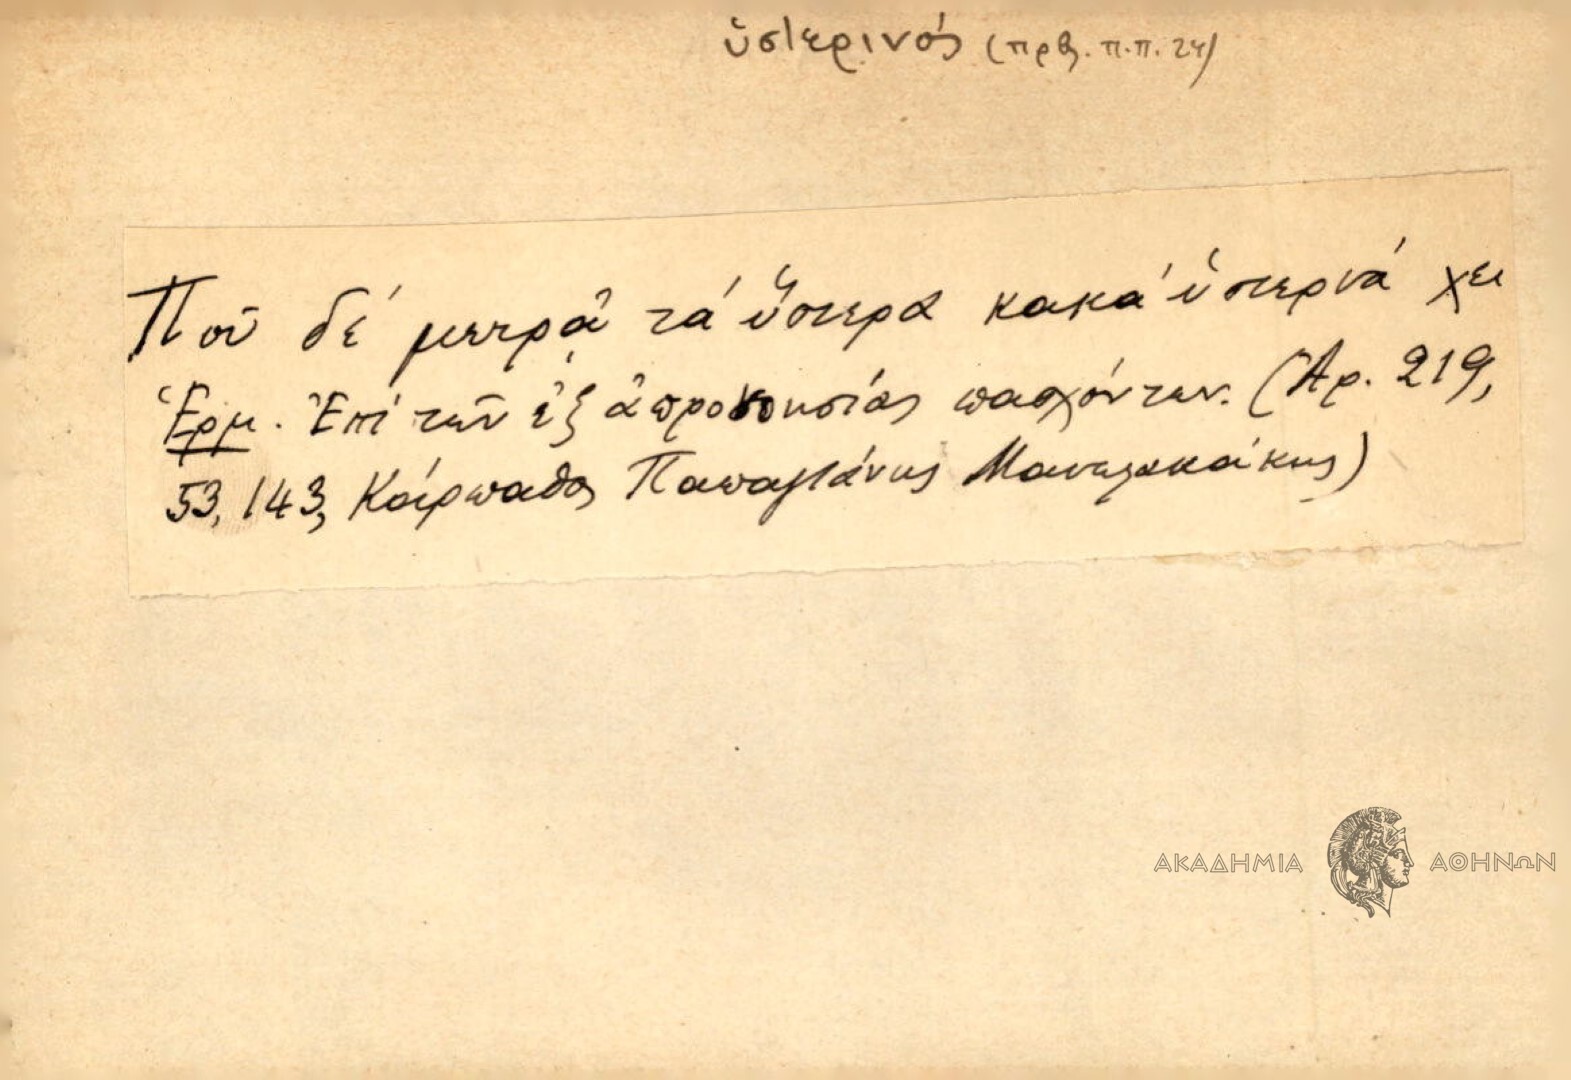 ὑστερινός (πρβ. π.π. 24)
Ποῦ δέ μετρᾶ τά ὕστερα κακά ὑστερνά χει
Ἑρμ. Ἐπί τῶν ἐξ ἀπρονοησίας πασχόντων. (Ἀρ. 219,
53, 143, Κάρπαθος Παπαγιάννης Μανωλακάκης)
ΑΚΑΔΗΜΙΑ ΑΘΗΝΩΝ